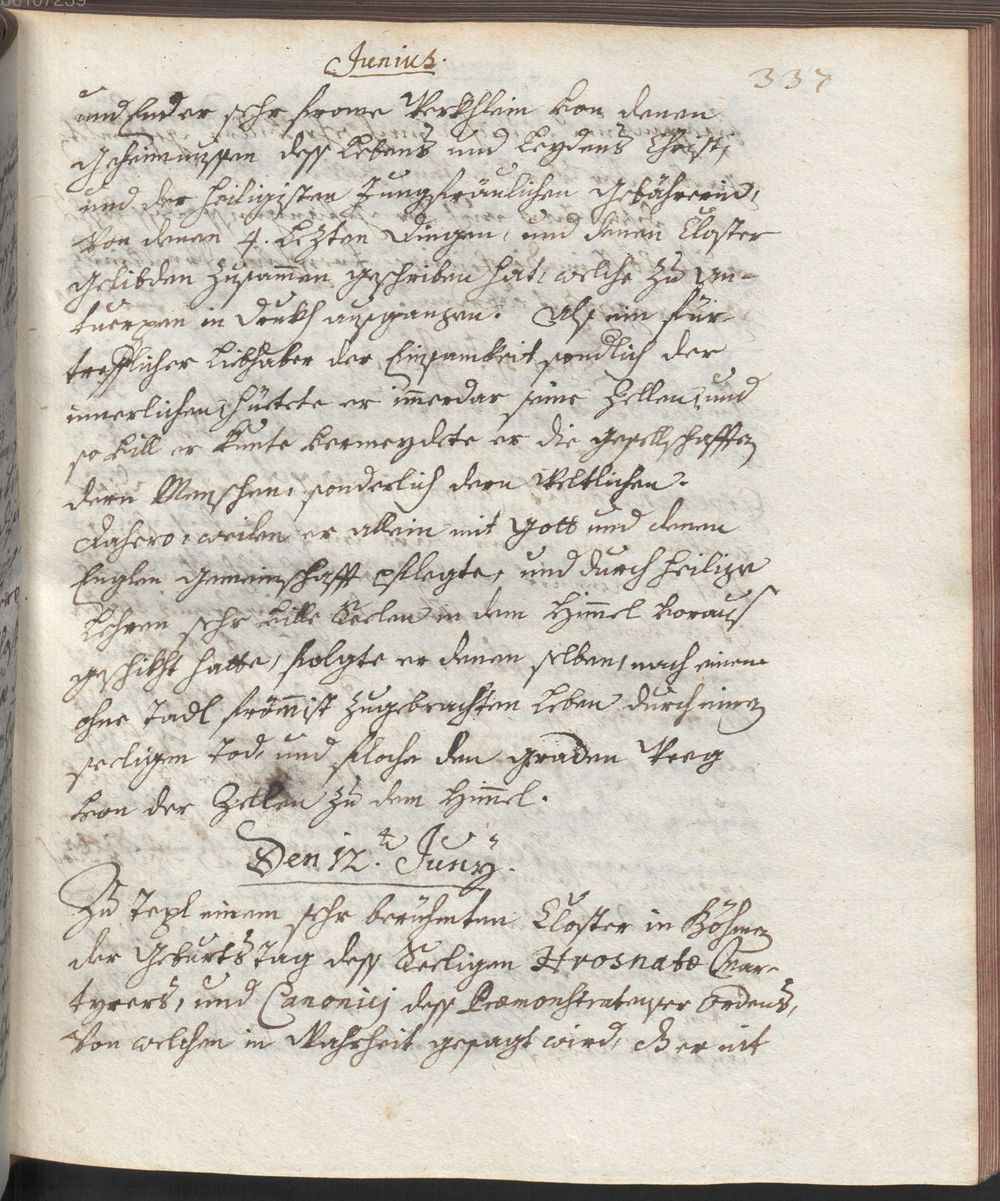 Junius.
337
und ander sehr frome Werkhlein von denen
Geheimnussen dess Lebens und Leydens Christi,
und der heiligisten Jungfräulichen Gebährerin,
Von denen 4. Lezten Dingen, und denen Closter
Gelibden zusammen geschriben hat, welche zu An-
tuerpen in Drukh aussgangen. Alss ein für-
trefflicher Liebhaber der Einsamkeit sondlich der
innerlichen, hüetete er immerdar seine Zellen, und
so vill er kunte vermeydete er die Gesellschafften
dern Menschen, sonderlich dern Weltlichen.
Dahero, weilen er allein mit Gott und denen
Englen Gemeinschafft pflegte, und durch heilige
Lehren sehr ville Seelen in dem Himmel vorauss
geschikht hatte, folgte er denen selben, nach einem
ohne Tadl frömmist zugebrachten Leben durch einen
seeligen Tod, und floche den graden Weeg
von der Zellen zu dem Himmel.
Den 12.t Juny.
Zu Tepl einem sehr berühmten Closter in Böhmen
der GeburtsTag dess Seeligen Hrosnatæ Mar-
tyrers, und Canonicj dess Præmonstratenser Ordens,
Von welchen in Wahrheit gesagt wird, Er nit